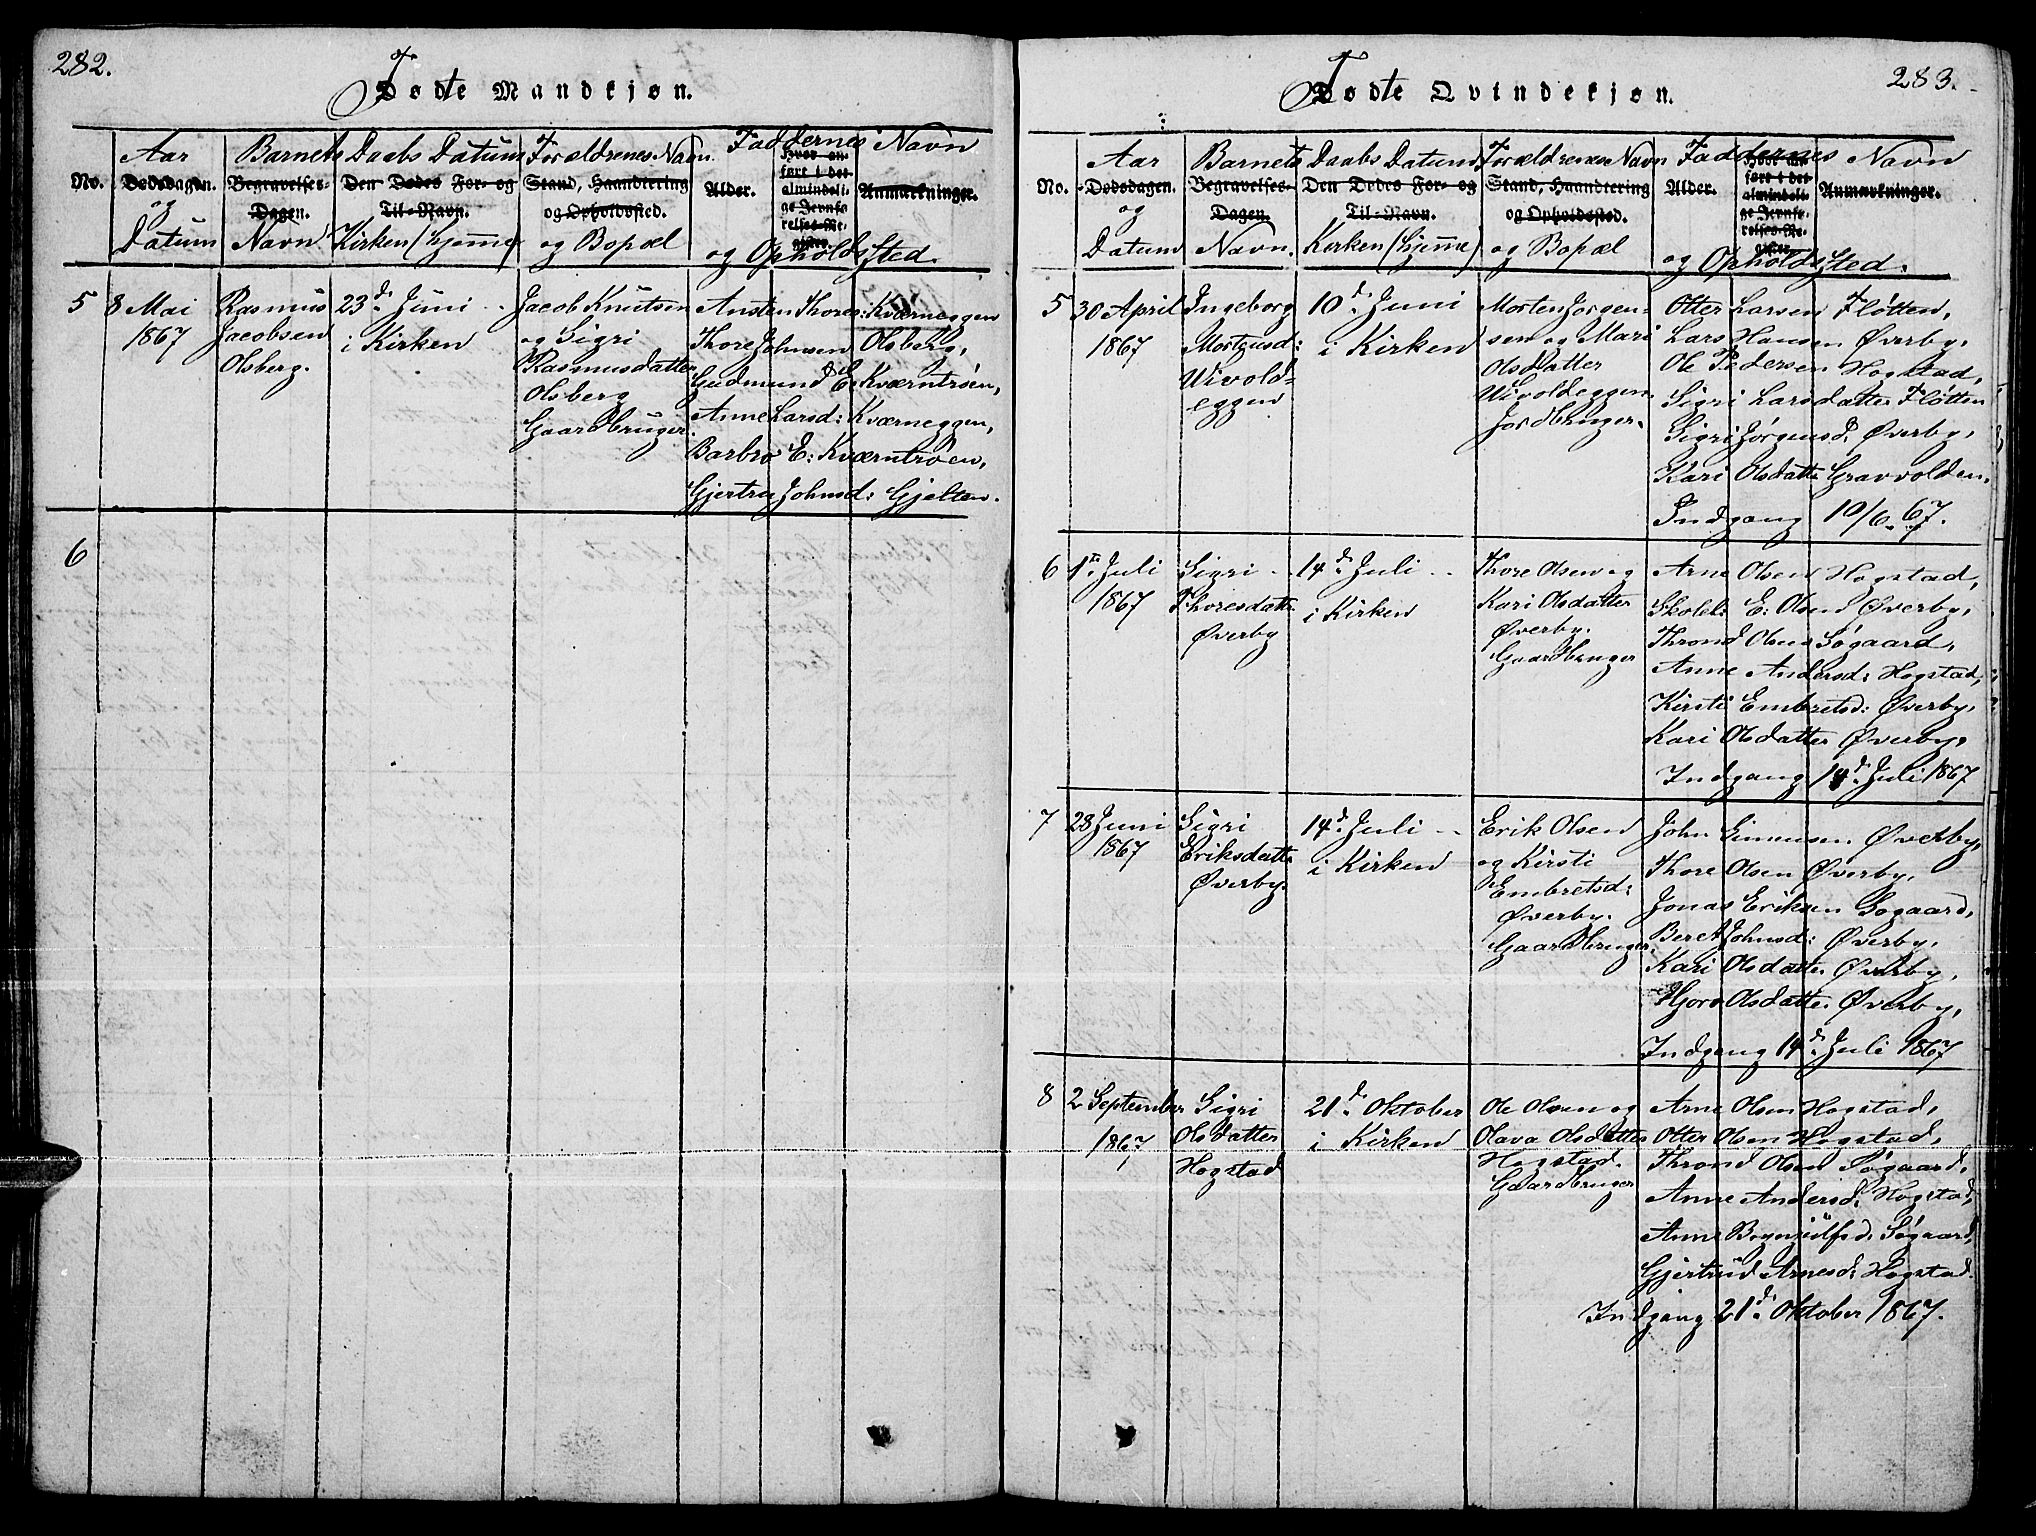 282.
Fødte Mandkjøn.
No.
Aar
Dødsdagen.
og
Datum
Barnets
Begravelses-
Dagen.
Navn
Daabs Datum
Den Dødes For- og
Til-Navn.
Kirken (hjemme)
Forældrenes Navn
Stand, Haandtering
og Opholdssted.
og Bopæl
Faddernes Navn
Alder.
Hvor an-
ført i det
almindeli-
ge Jevnfø-
relses-Re-
gister.
Anmærkninger.
og Opholdssted.
5
8 Mai
1867
Rasmus
Jacobsen
Olsberg.
23d Juni
i Kirken
Jacob Knutsen
og Sigri
Rasmusdatter
Olsberg
Gaardbruger.
Austen Thores: Kværneggen
Thore Johnsen Olsberg,
Gudmund E: Kværntrøen,
Anne Larsd: Kværneggen,
Barbro E: Kværntrøen,
Gjertru Johnsd: Gjelten.
6
283.
Fødte Qvindekjøn.
No.
Aar
Dødsdagen.
og
Datum
Barnets
Begravelses-
Dagen.
Navn.
Daabs Datum
Den Dødes For- og
Til-Navn.
Kirken (hjemme)
Forældrenes Navn
Stand, Haandtering
og Opholdssted.
og Bopæl
Faddernes Navn
Alder.
Hvor an-
ført i det
almindeli-
ge Jevnfø-
relses-Re-
gister.
Anmærkninger.
og Opholdssted.
5
30 April
1867
Ingeborg
Mortensd:
Wivold-
eggen
10d Juni
i Kirken
Morten Jørgen-
sen og Mari
Olsdatter
Wivoldeggen
Jordbruger.
Otter Larsen Fløtten,
Lars Hansen Øverby,
Ole Pedersen Hogstad,
Sigri Larsdatter Fløtten
Sigri Jørgensd, Øverby,
Kari Olsdatte Gravvolden,
Indgang 10/6. 67.
6
1ste Juli
1867
Sigri
Thoresdatt:
Øverby
14d Juli
i Kirken
Thore Olsen og
Kari Olsdatter
Øverby.
Gaardbruger
Arne Olsen Hogstad,
Skolel: E: Olsen Øverby,
Thrond Olsen Søgaard,
Anne Andersd: Hogstad,
Kirsti Embretsd: Øverby,
Kari Olsdatter Øverby,
Indgang 14d Juli 1867
7
28 Juni
1867
Sigri
Eriksdatt:
Øverby.
14d Juli
i Kirken
Erik Olsen
og Kirsti
Embretsd:
Øverby.
Gaardbruger.
John Simensen Øverby,
Thore Olsen Øverby,
Jonas Eriksen Sogaard,
Beret Johnsd: Øverby,
Kari Olsdatte. Øverby,
Gjoro Olsdatte. Øverby,
Indgang 14d Juli 1867
8
2 September
1867
Sigri
Olsdatter
Hogstad
21d Oktober
i Kirken
Ole Olsen og
Olava Olsdatter
Hogstad.
Gaardbruger
Arne Olsen Hogstad,
Otter Olsen Hogstad,
Thrond Olsen Søgaard,
Anne Andersd: Hogstad,
Anne Brynjülfsd. Søgaard,
Gjertrud Arnesd: Hogstad.
Indgang 21d Oktober 1867.